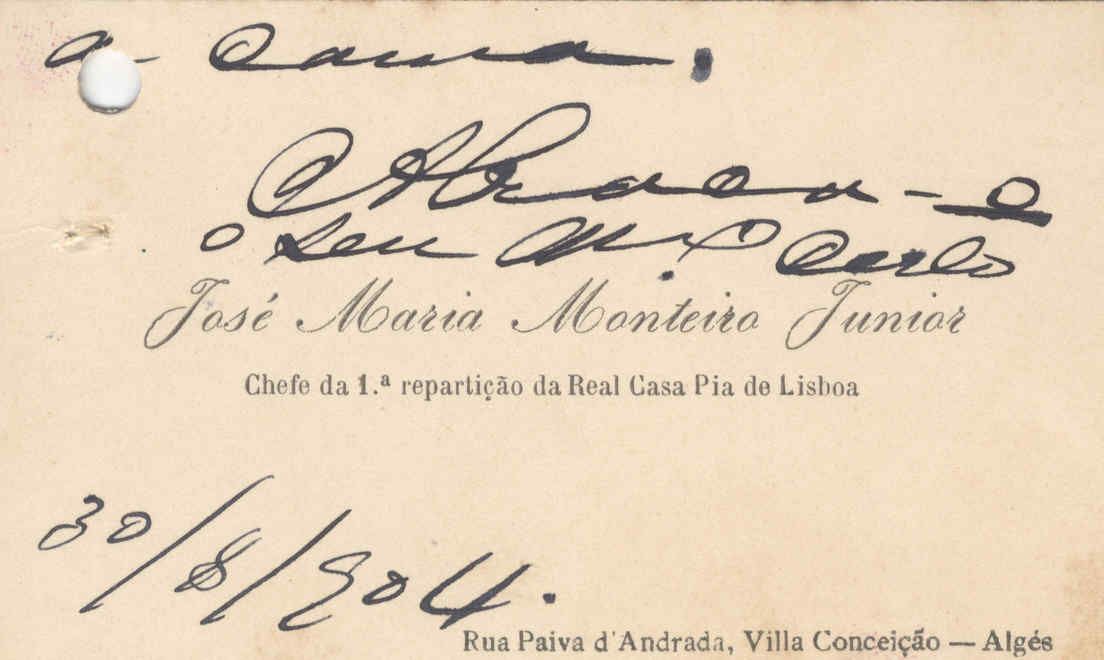 a cama.
Abraça-o
o seu M.to Certo
José Maria Monteiro Junior
Chefe da 1.ª repartição da Real Casa Pia de Lisboa
30/8/904.
Rua Paiva d'Andrada, Villa Conceição — Algés